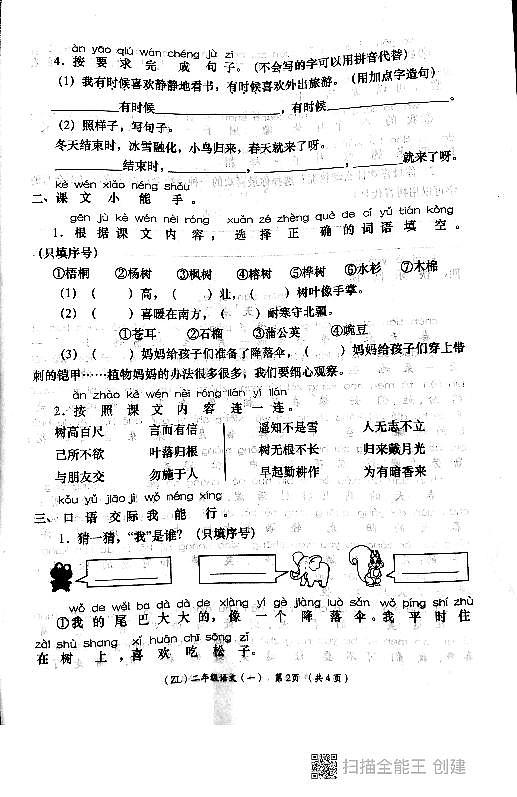 àn yāo qiú wán chéng jù zi
4．按 要 求 完 成 句 子。（不会写的字可以用拼音代替）
（1）我有时候喜欢静静地看书，有时候喜欢外出旅游。（用加点字造句）
________有时候________________，有时候________________。
（2）照样子，写句子。
冬天结束时，冰雪融化，小鸟归来，春天就来了呀。
________结束时，________，________，________就来了呀。
kè wén xiǎo néng shǒu
二、课 文 小 能 手。
gēn jù kè wén nèi róng xuǎn zé zhèng què de cí yǔ tián kòng
1．根 据 课 文 内 容，选 择 正 确 的 词 语 填 空。
（只填序号）
①梧桐 ②杨树 ③枫树 ④榕树 ⑤桦树 ⑥水杉 ⑦木棉
（1）（ ）高，（ ）壮，（ ）树叶像手掌。
（2）（ ）喜暖在南方，（ ）耐寒守北疆。
①苍耳 ②石榴 ③蒲公英 ④豌豆
（3）（ ）妈妈给孩子们准备了降落伞，（ ）妈妈给孩子们穿上带
刺的铠甲……植物妈妈的办法很多很多，我们要细心观察。
àn zhào kè wén nèi róng lián yì lián
2．按 照 课 文 内 容 连 一 连。
树高百尺 言而有信 遥知不是雪 人无志不立
己所不欲 叶落归根 树无根不长 归来戴月光
与朋友交 勿施于人 早起勤耕作 为有暗香来
kǒu yǔ jiāo jì wǒ néng xíng
三、口 语 交 际 我 能 行。
1．猜一猜，“我”是谁？（只填序号）
wǒ de wěi ba dà dà de xiàng yí gè jiàng luò sǎn wǒ píng shí zhù
①我 的 尾 巴 大 大 的，像 一 个 降 落 伞。我 平 时 住
zài shù shang xǐ huān chī sōng zǐ
在 树 上，喜 欢 吃 松 子。
（ZL）二年级语文（一） 第2页 （共4页）
扫描全能王 创建